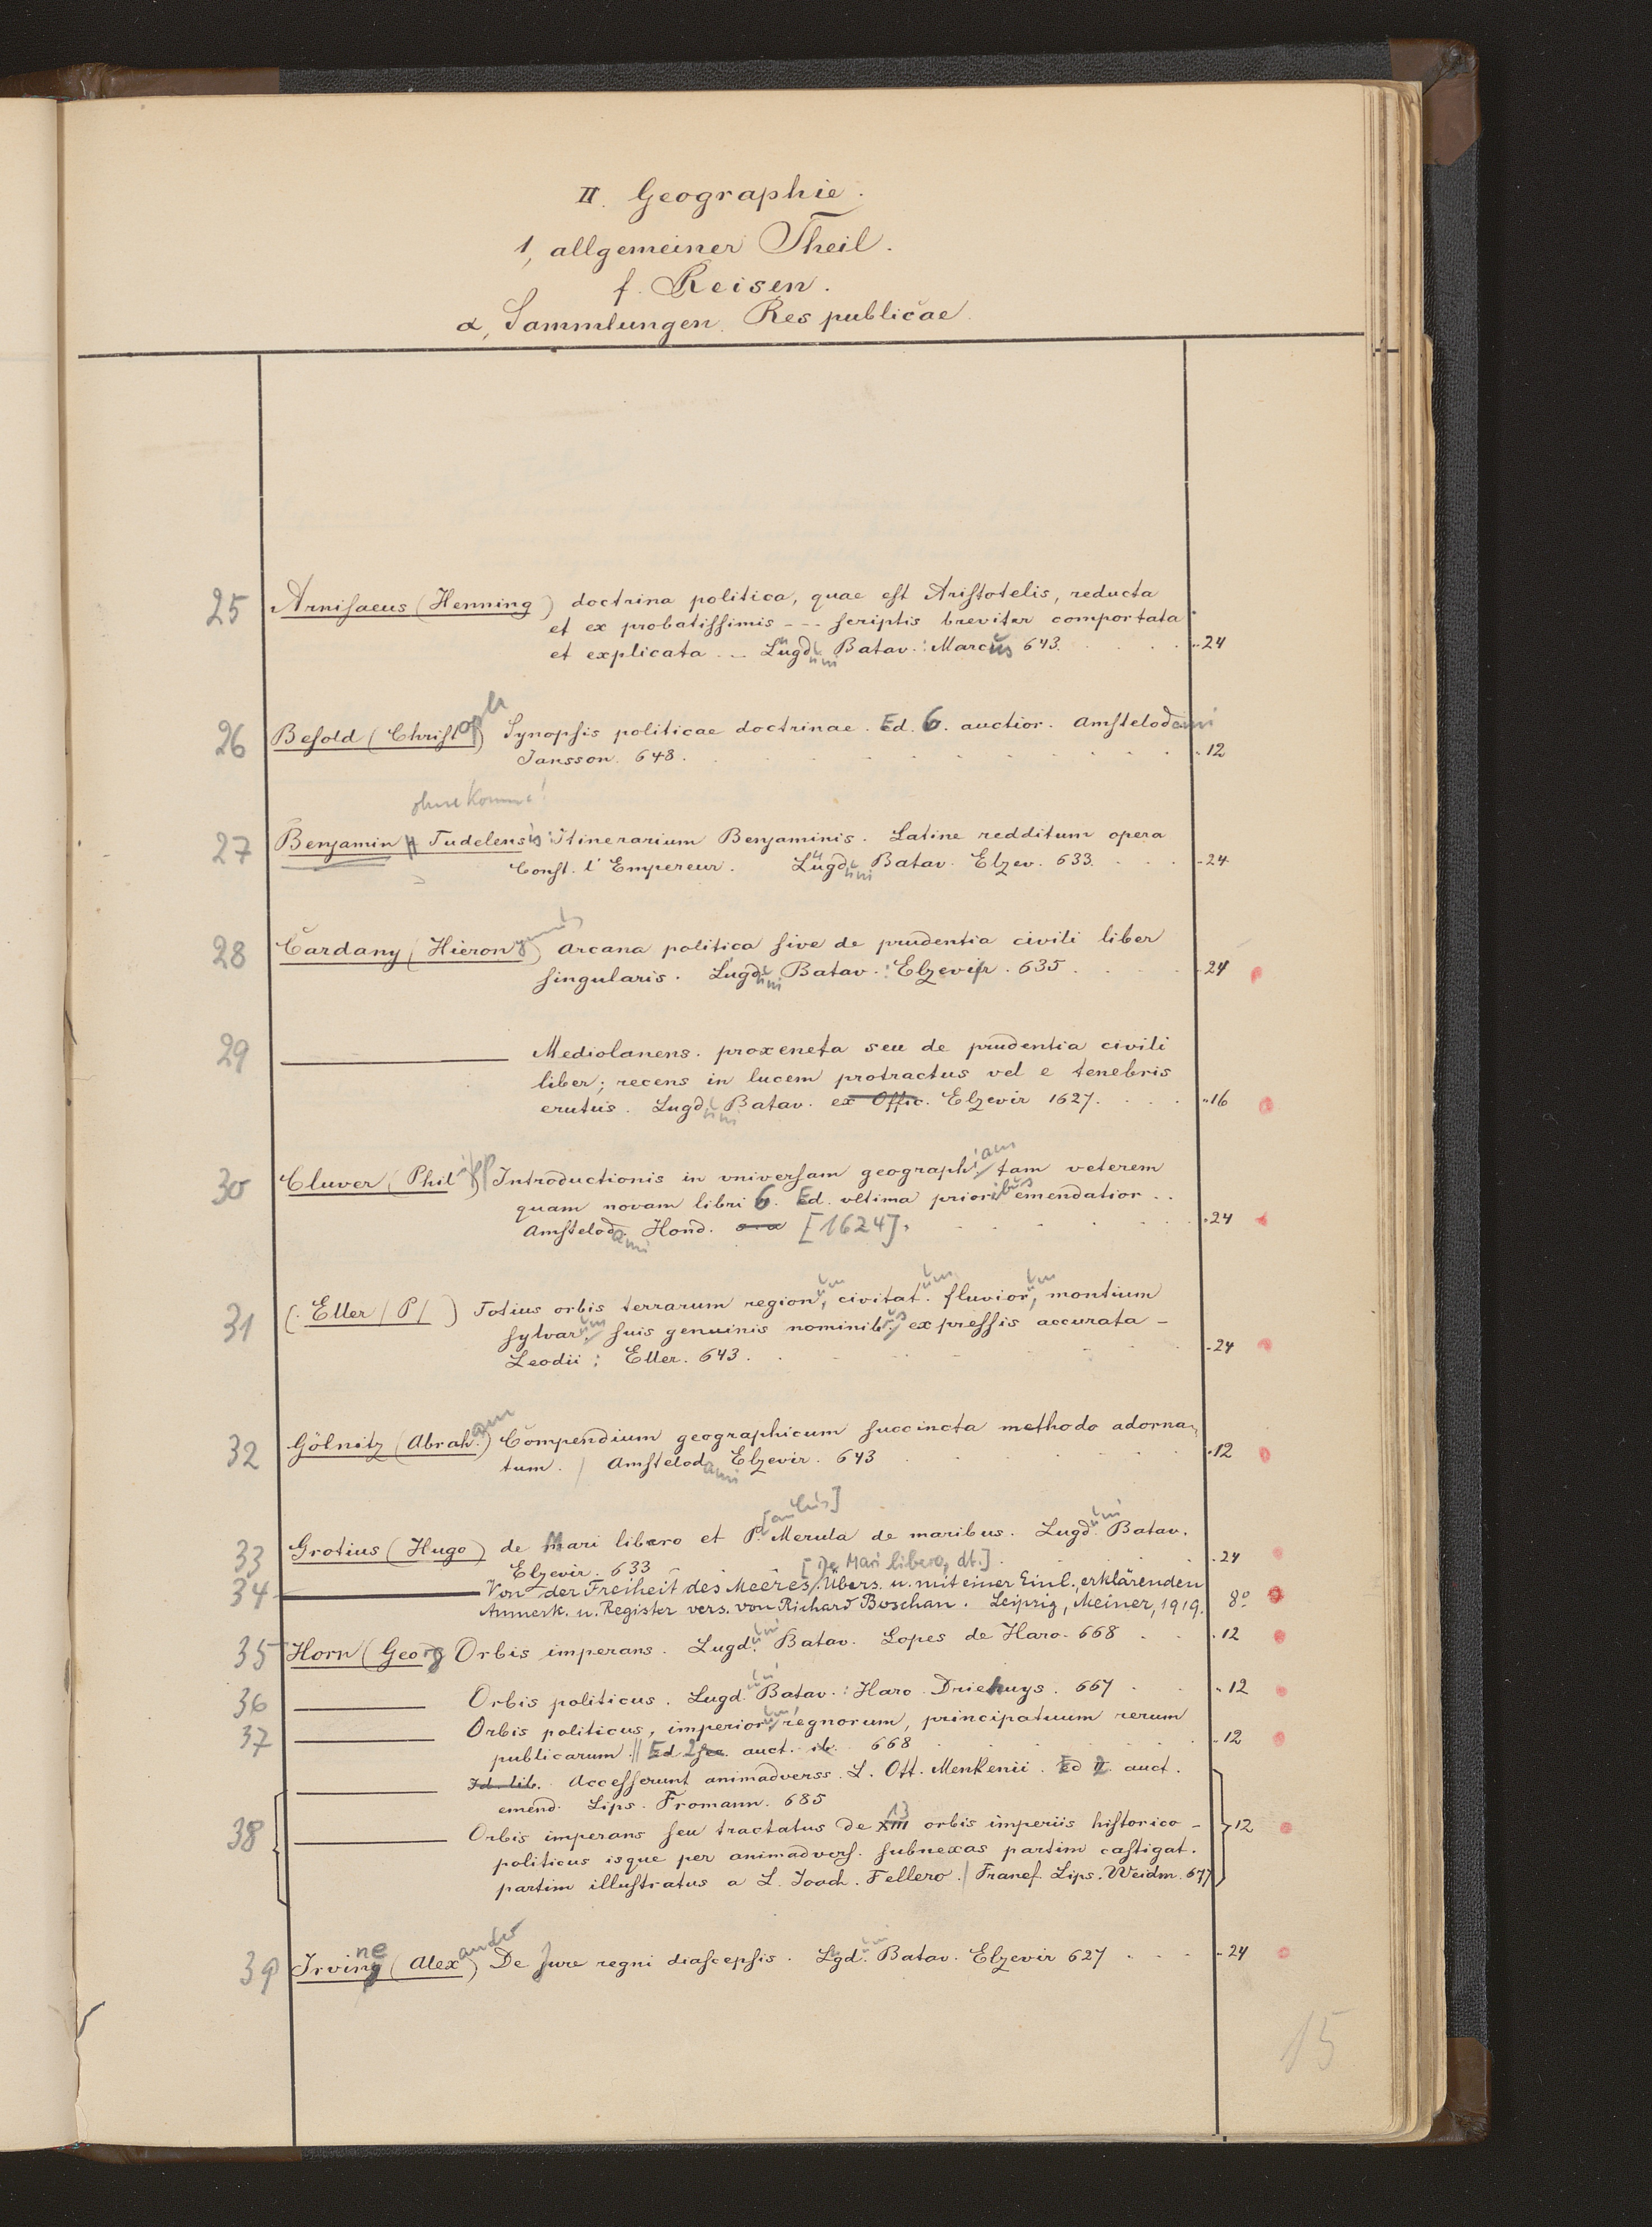 II. Geographie.
1, allgemeiner Theil.
f. Reisen.
α, Sammlungen. Res publicae.
25 Arnisaeus (Henning) doctrina politica, quae est Aristotelis, reducta
et ex probatissimis --- scriptis breviter comportata
et explicata -- Lugduni Batav.: Marcus 643. . . . "24
26 Besold (Christoph) Synopsis politicae doctrinae. Ed. 6. auctior. Amstelodami
Jansson. 648. . . . "12
ohne Komma!
27 Benjamin Tudelensis: Itinerarium Benjaminis. Latine redditum opera
Const. l'Empereur. Lugduni Batav. Elzev. 633. . . . "24
28 Cardany (Hieronymus) Arcana politica sive de prudentia civili liber
singularis. Lugduni Batav.: Elzevir. 635. . . . "24
29 ——— Mediolanens. proxeneta seu de prudentia civili
liber; recens in lucem protractus vel e tenebris
erutus. Lugduni Batav. ex Offic. Elzevir 1627. . . . "16
30 Cluver (Philipp) Introductionis in vniversam geographiam tam veterem
quam novam libri 6. Ed. vltima prioribus emendatior. .
Amstelodami Hond. [1624]. . . . "24
31 (Eller /P/) Totius orbis terrarum regionum, civitatum fluviorum, montium
sylvarum suis genuinis nominibus expressis accurata -
Leodii: Eller. 643. . . . "24
32 Gölnitz (Abraham) Compendium geographicum succincta methodo adorna-
tum. / Amstelodami Elzevir. 643 . . . "12
33 Grotius (Hugo) de Mari libero et P[aulus] Merula de maribus. Lugduni Batav.
Elzevir. 633 . . . "24
[De Mari libero, dt.]
34 ——— Von der Freiheit des Meeres. Übers. u. mit einer Einl., erklärenden
Anmerk. u. Register vers. von Richard Boschan. Leipzig, Meiner, 1919. 8°
35 Horn (Georg Orbis imperans. Lugduni Batav. Lopes de Haro. 668 . . "12
36 ——— Orbis politicus. Lugduni Batav.: Haro. Driehuys. 667 . . "12
37 ——— Orbis politicus, imperiorum, regnorum, principatuum rerum
publicarum. // Ed 2 sec. auct. ib. 668 . . . "12
——— Id. lib. Accesserunt animadverss. L. Ott. Menkenii. Ed 2. auct.
emend. Lips. Fromann. 685
38 ——— Orbis imperans seu tractatus de XIII 13 orbis imperiis historico-
politicus isque per animadvers. subnexas partim castigat. }12
partim illustratus a L. Joach. Fellero. / Francf. Lips. Weidm. 677
39 Irvine (Alexander) De Jure regni diascepsis. Lugduni Batav. Elzevir 627 . . . "24
15